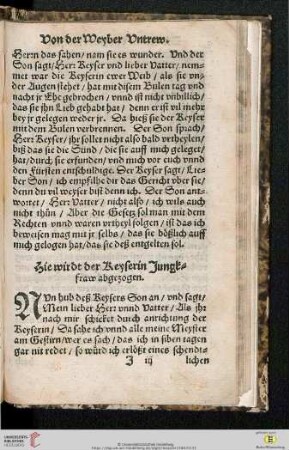 Von der Weyber Vntrew.
Herrn das sahen / nam sie es wunder. Vnd der
Son sagt / Herr Keyser vnd lieber Vatter / nem-
met war die Keyserin ewer Weib / als sie vn-
der Augen stehet / hat mit disem Bulen tag vnd
nacht jr Ehe gebrochen / vnnd ist nicht vnbillich /
das sie jhn Lieb gehabt hat / denn er ist vil mehr
bey jr gelegen weder jr. Da hieß sie der Keyser
mit dem Bulen verbrennen. Der Son sprach /
Herr Keyser / jhr sollet nicht also bald vrtheylen /
biß das sie die Sünd / die sie auff mich geleget
hat / durch sie erfunden / vnd mich vor euch vnnd
den Fürsten entschuldige. Der Keyser sagt / Lie-
ber Son / ich empfilhe dir das Gericht vber sie /
denn du vil weyser biß denn ich. Der Son ant-
wortet / Herr Vatter / nicht also / ich wils auch
nicht thün / Aber die Gesetz sol man mit dem
Rechten vnnd waren vrtheyl folgen / ist das ich
beweisen mag mit jr selbs / das sie böslich auff
mich gelogen hat / das sie deß entgelten sol.
Hie wirdt der Keyserin Jungk-
fraw abgezogen.
NVn hub deß Keysers Son an / vnd sagt /
Mein lieber Herr vnnd Vatter / Als jhr
nach mir schicket durch anrichtung der
Keyserin / Da sahe ich vnnd alle meine Meyster
am Gestirn / wer es sach / das ich in siben tagen
gar nit redet / so würd ich erlößt eines schendt-
J iij lichen